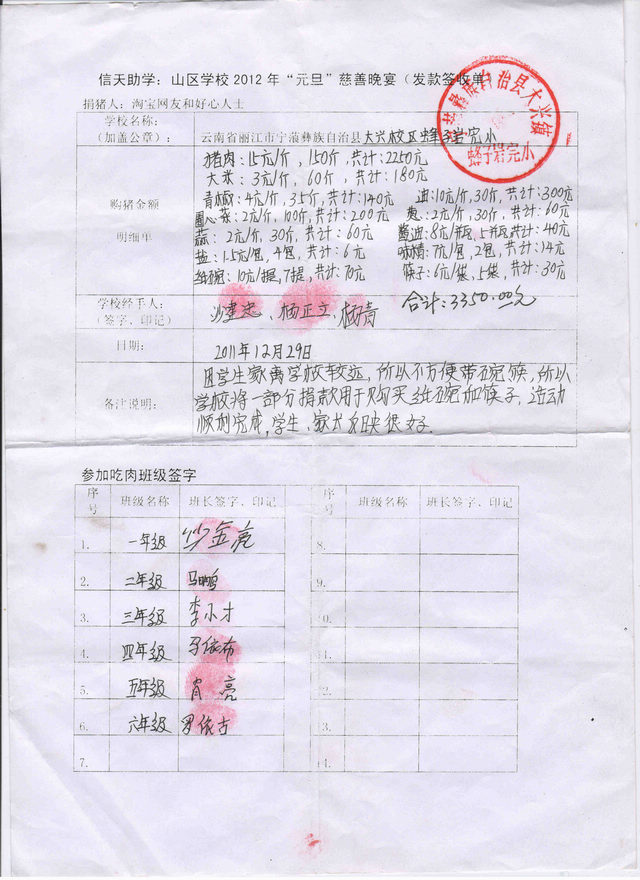 信天助学：山区学校2012年“元旦”慈善晚宴（发款签收单
捐猪人：淘宝网友和好心人士
学校名称：
（加盖公章）： 云南省丽江市宁蒗彝族自治县大兴校区蜂子岩完小
自治县大兴镇
蜂子岩完小
购猪金额
明细单
猪肉：15元/斤，150斤，共计：2250元
大米：3元/斤，60斤，共计：180元
青椒：4元/斤，35斤，共计：140元 油：10元/斤，30斤，共计：300元
圆心菜：2元/斤，100斤，共计：200元 2元/斤，30斤，共计：60元
蒜：2元/斤，30斤，共计：60元 酱油：8元/瓶，5瓶，共计：40元
盐：1.5元/包，4包，共计：6元 味精：7元/包，2包，共计：14元
纸碗：10元/提，7提，共计：70元 筷子：6元/袋，5袋，共计：30元
合计：3350.00元
学校经手人：
（签字、印记） 沙建忠、杨正立、杨青
日期： 2011年12月29日
备注说明：
因学生家离学校较远，所以不方便带碗筷，所以
学校将一部分捐款用于购买纸碗和筷子，活动
顺利完成，学生、家长反映很好。
参加吃肉班级签字
序号 班级名称 班长签字、印记 序号 班级名称 班长签字、印记
1. 一年级 沙金亮 8.
2. 二年级 马鹏 9.
3. 三年级 李小才 10.
4. 四年级 马依布 11.
5. 五年级 肖亮 12.
6. 六年级 罗依古 13.
7. 14.